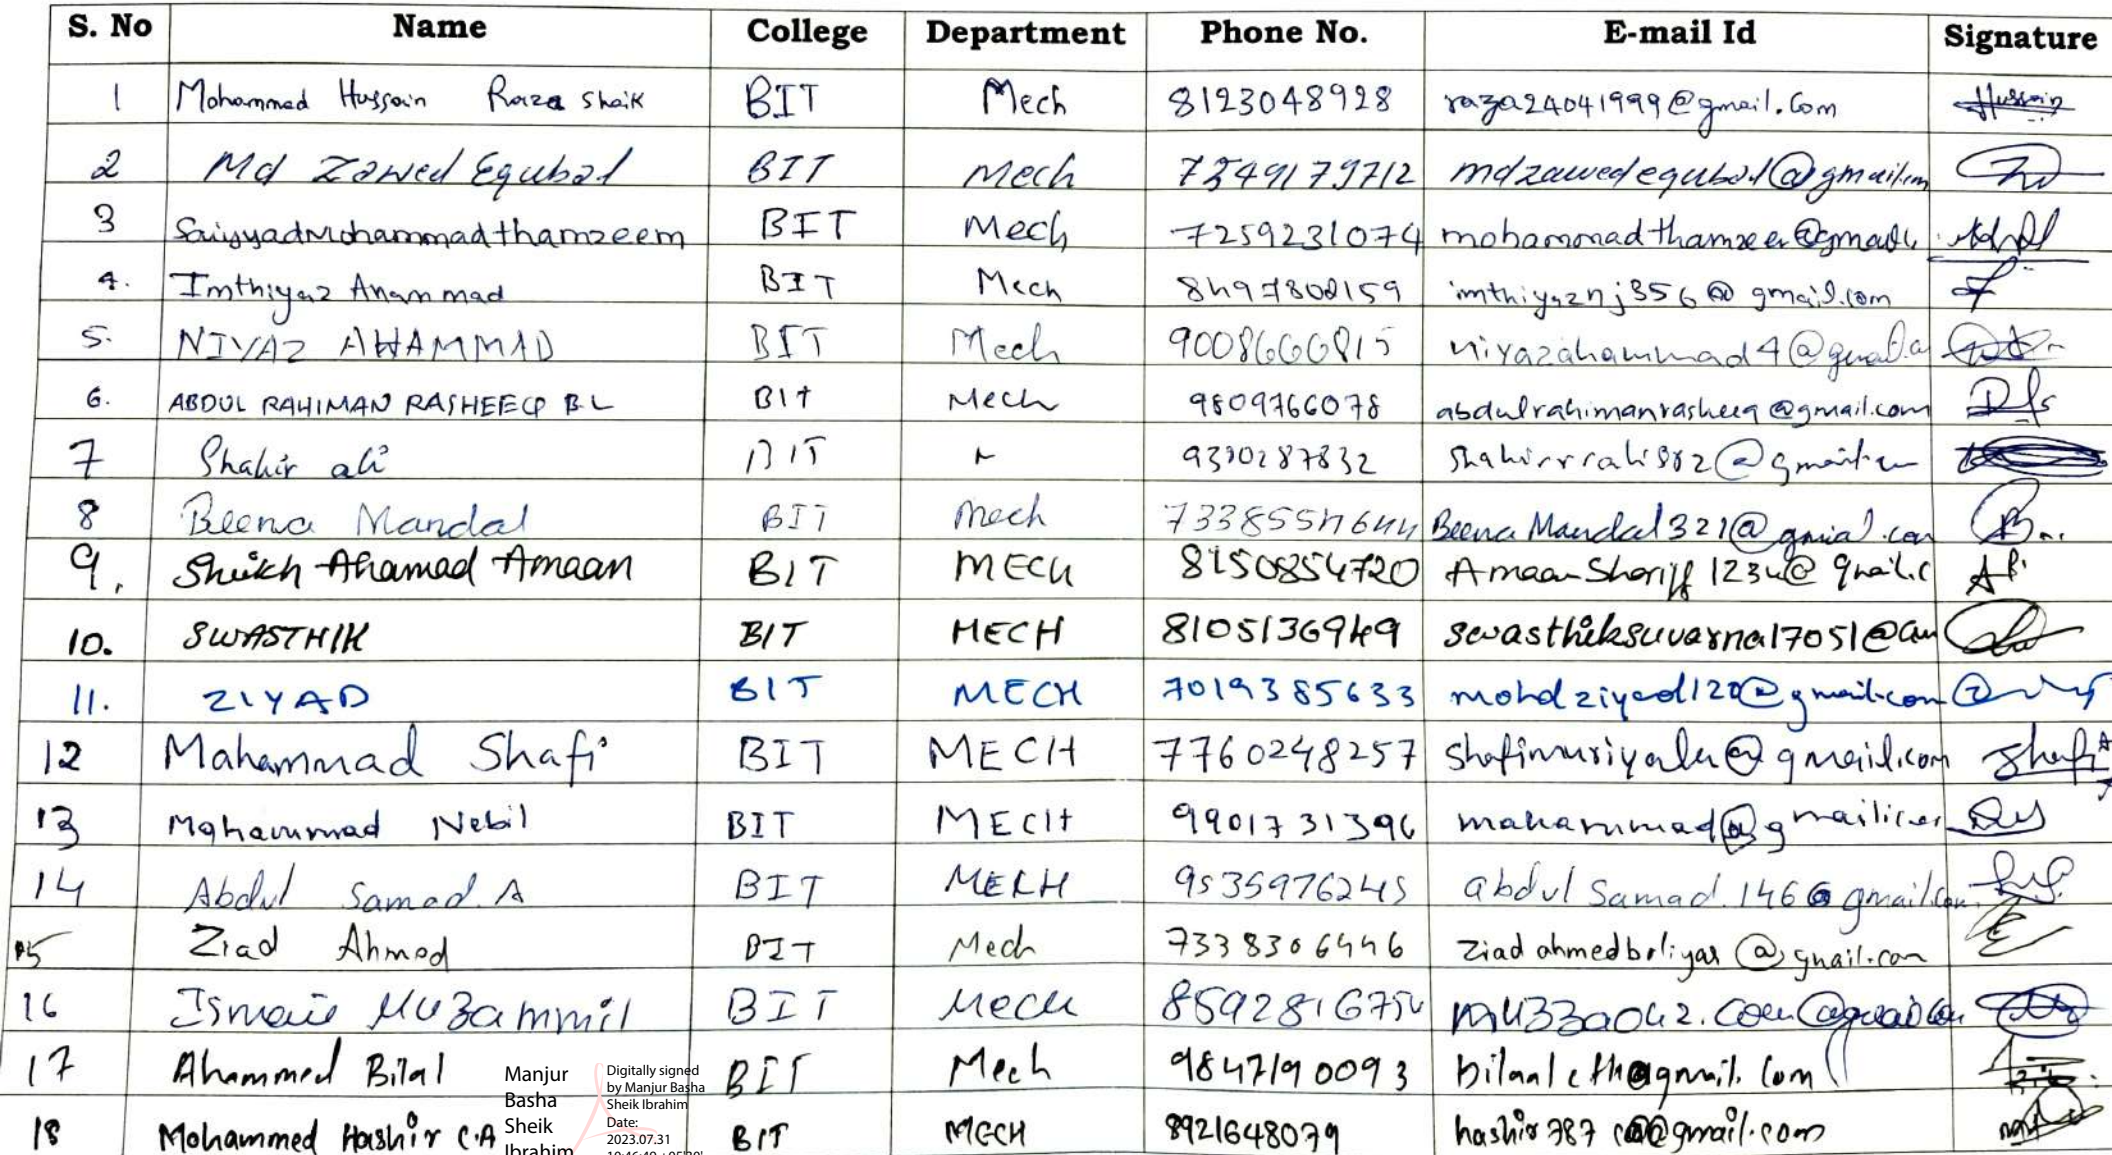 S. No Name College Department Phone No. E-mail Id Signature
1 Mohammad Hussain Raza Shaik BIT Mech 8123048928 raza24041999@gmail.com Hussain
2 Md Zawed Equbal BIT Mech 7349179712 mdzawedequbal@gmail.com
3 Saiyyad Mohammad thamzeem BIT Mech 7259231074 mohammad thamzeer@gmail.
4. Imthiyaz Anammad BIT Mech 8497808159 imthiyaznj356@gmail.com
5. NIYAZ AHAMMAD BIT Mech 9008660815 niyazahammad4@gmail.
6. ABDUL RAHIMAN RASHEEQ B.L BIT Mech 9809766078 abdulrahimanrasheeq@gmail.com
7 Shahir ali BIT
8 Beena Mandal BIT Mech 7338554644 Beena Mandal321@gmial.com
9. Sheikh Ahamad Amaan BIT MECH 8150854720 Amaan Shariff 1234@gmail.c
10. SWASTHIK BIT MECH 8105136949 swasthiksuvarna17051@
11. ZIYAD BIT MECH 7019385633 mohdziyad120@gmail.com
12 Mahammad Shafi BIT MECH 7760248257 shafimuriyala@gmail.com Shafi
13 Mahammad Nebil BIT MECH 9901731396 mahammad@g
14 Abdul Samad.A BIT MECH 9535976245 abdul Samad.146@gmail.com
15 Ziad Ahmed BIT Mech 7338306446 Ziad ahmedboliyar@gmail.com
16 Ismail Muzammil BIT Mech
17 Ahammed Bilal BIT Mech 9847190093 bilaalcth@gmail.com
18 Mohammed Hashir C.A BIT MECH 8921648079 hashir787 ca@gmail.com
Manjur
Basha
Sheik
Ibrahim
Digitally signed
by Manjur Basha
Sheik Ibrahim
Date:
2023.07.31